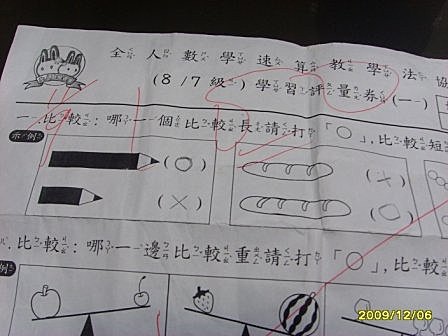 全人數學速算教學法協
(8/7級)學習評量券(一)
一、比較:哪一個比較長請打「○」,比較短
示例
(○)
(×)
(×)
(○)
比較:哪一邊比較重請打「○」,比較
例
2009/12/06